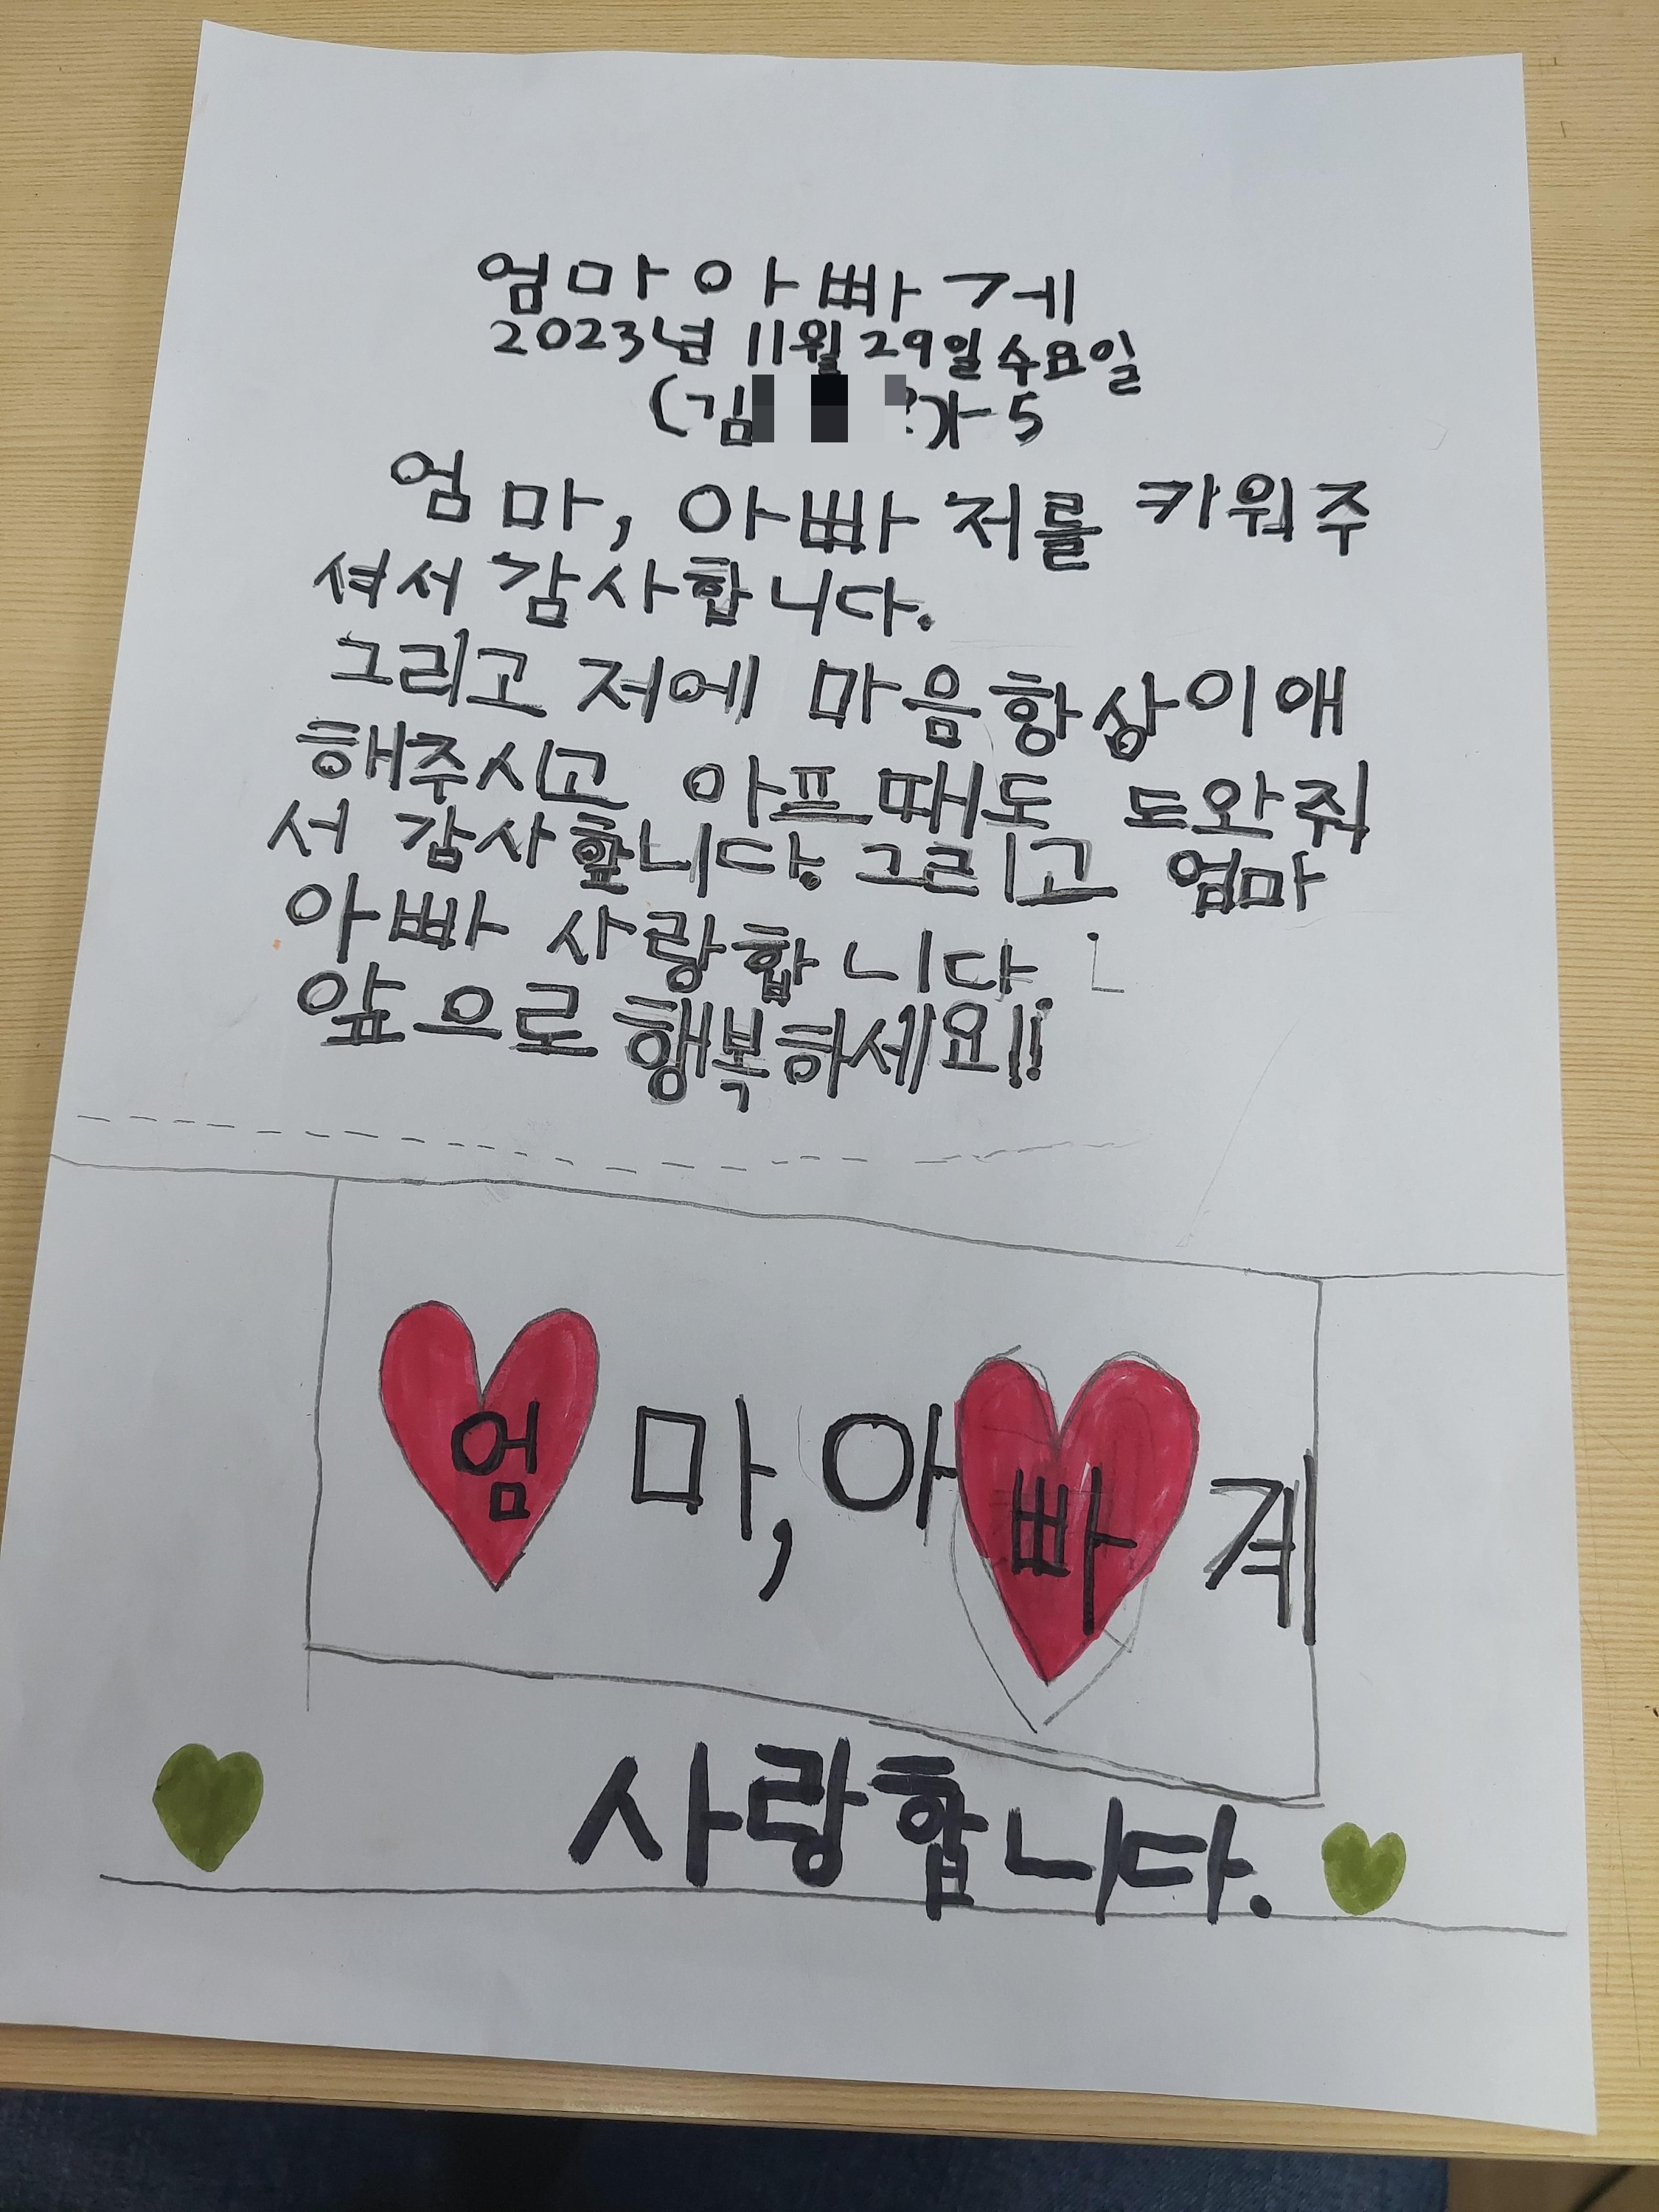 엄마아빠게
2023년 11월 29일수요일
(김
엄마, 아빠 저를 키워주
셔서 감사합니다.
그리고 저에 마음항상이애
해주시고 아프때도 도와줘
서 감사합니다. 그리고 엄마
아빠 사랑합니다.
앞으로 행복하세요!!
엄마,아빠계
사랑합니다.